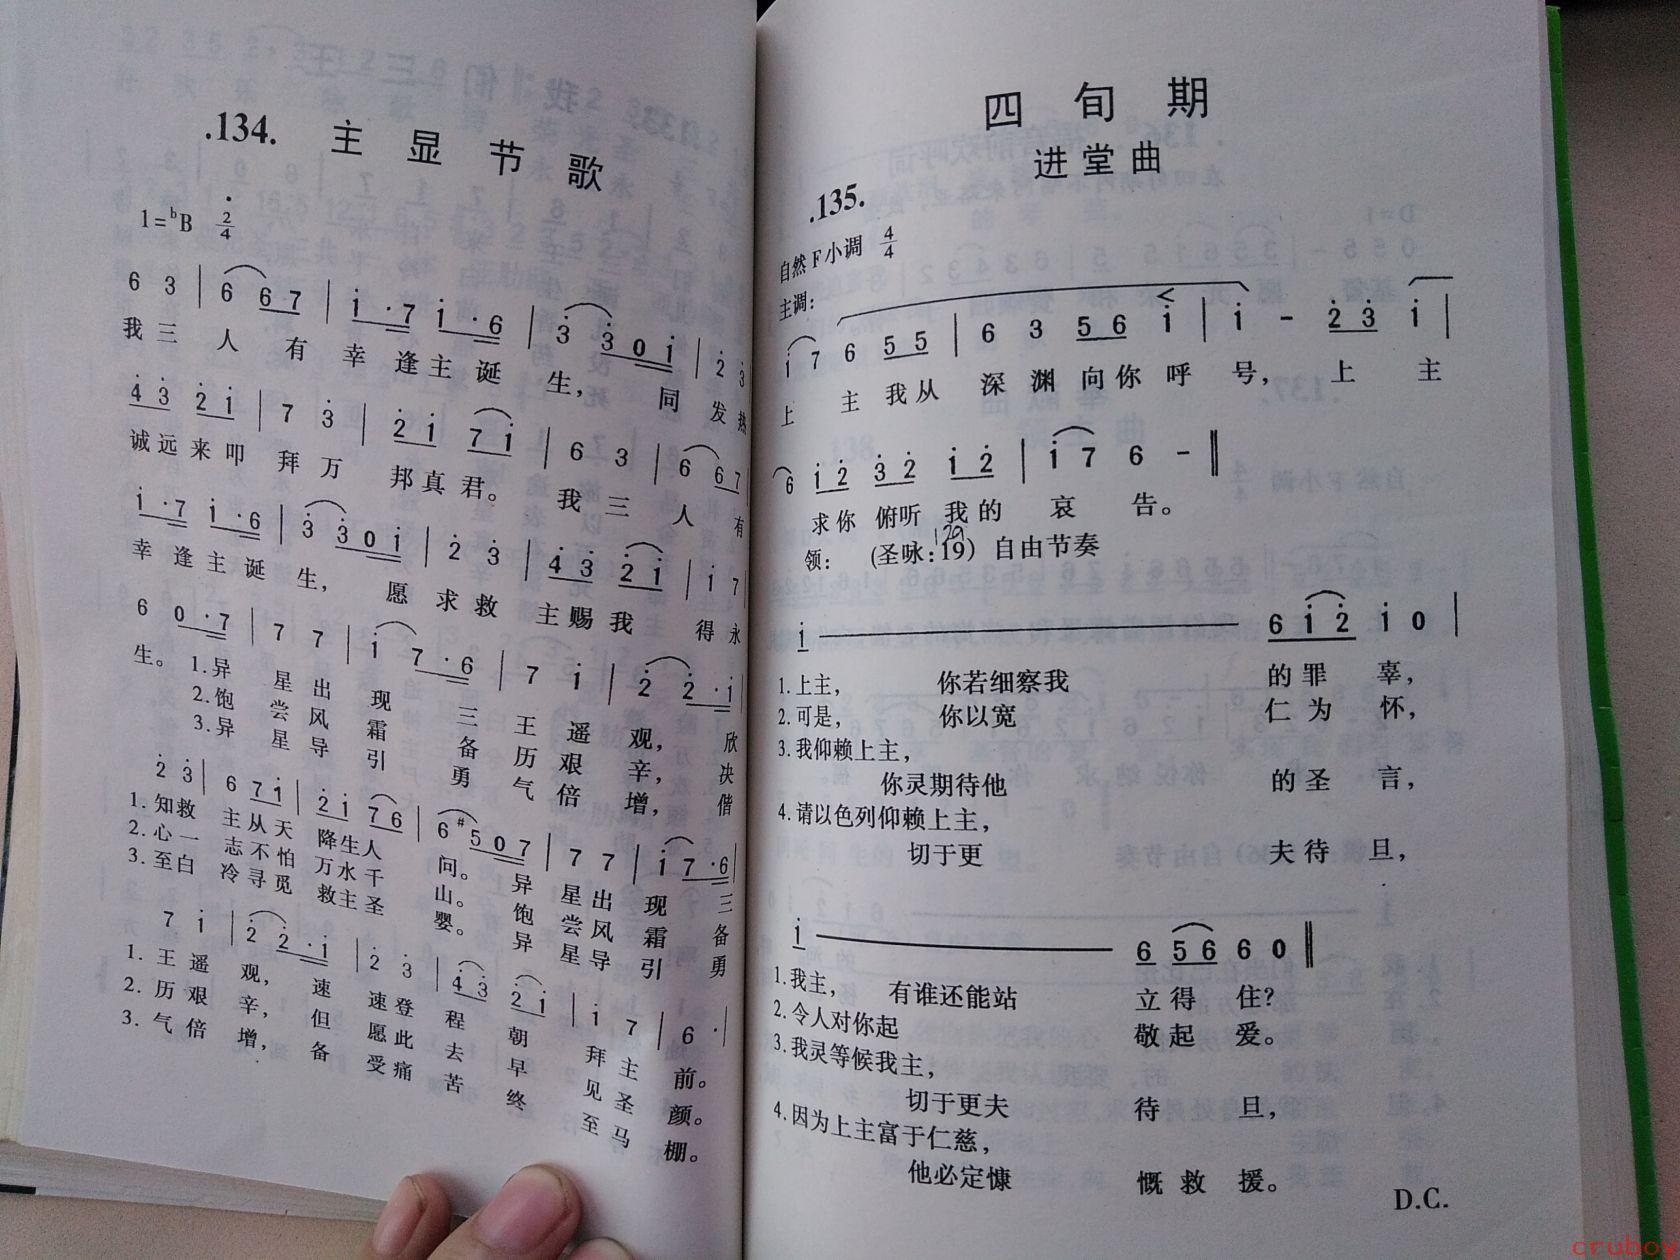 .134. 主 显 节 歌
1=ᵇB 2/4
6 3 | 6 6 7 | i · 7 i · 6 | 3 3 0 i | 2 3
我 三 人 有 幸 逢 主 诞 生, 同 发 热
4 3 2 i | 7 3 | 2 i 7 i | 6 3 | 6 6 7
诚 远 来 叩 拜 万 邦 真 君。 我 三 人 有
i · 7 i · 6 | 3 3 0 i | 2 3 | 4 3 2 i | i 7
幸 逢 主 诞 生, 愿 求 救 主 赐 我 得 永
6 0 · 7 | 7 7 | i 7 · 6 | 7 i | 2 2 · i
生。 1. 异 星 出 现 三 王 遥 观, 欣
2. 饱 尝 风 霜 备 历 艰 辛, 决
3. 异 星 导 引 勇 气 倍 增, 偕
2 3 | 6 7 i | 2 i 7 6 | 6 #5 0 7 | 7 7 | i 7 · 6
1. 知 救 主 从 天 降 生 人 间。 异 星 出 现 三
2. 心 一 志 不 怕 万 水 千 山。 饱 尝 风 霜 备
3. 至 白 冷 寻 觅 救 主 圣 婴。 异 星 导 引 勇
7 i | 2 2 · i | 2 3 | 4 3 2 i | i 7 | 6 · |
1. 王 遥 观, 速 速 登 程 朝 拜 主 前。
2. 历 艰 辛, 但 愿 此 去 早 见 圣 颜。
3. 气 倍 增, 备 受 痛 苦 终 至 马 棚。
四 旬 期
进 堂 曲
.135.
自然 F 小调 4/4
主调:
i 7 6 5 5 | 6 3 5 6 i | i - 2 3 i |
上 主 我 从 深 渊 向 你 呼 号, 上 主
6 i 2 3 2 i 2 | i 7 6 - ‖
求 你 俯 听 我 的 哀 告。
领: (圣咏:19) 自由节奏
129
i 6 i 2 i 0 |
1. 上主, 你若细察我 的 罪 辜,
2. 可是, 你以宽 仁 为 怀,
3. 我仰赖上主,
你灵期待他 的 圣 言,
4. 请以色列仰赖上主,
切于更 夫 待 旦,
i 6 5 6 6 0 ‖
1. 我主, 有谁还能站 立 得 住?
2. 令人对你起 敬 起 爱。
3. 我灵等候我主,
切于更夫 待 旦,
4. 因为上主富于仁慈,
他必定慷 慨 救 援。
D.C.
cruboy